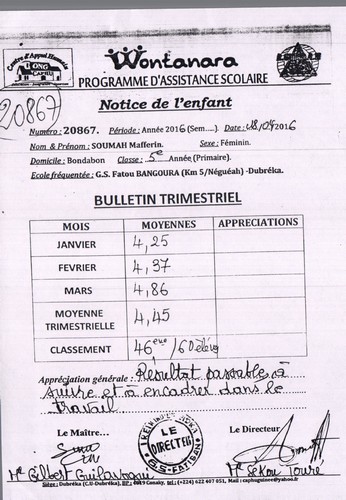 Centre d'Appui Humanita
ONG
CAPHU
Wontanara
PROGRAMME D'ASSISTANCE SCOLAIRE
Notice de l'enfant
20867
Numéro : 20867. Période : Année 2016 (Sem.....). Date : 18/04/2016
Nom & Prénom : SOUMAH Mafferin. Sexe : Féminin.
Domicile : Bondabon Classe : 5e Année (Primaire).
Ecole fréquentée : G.S. Fatou BANGOURA (Km 5/Néguéah) -Dubréka.
BULLETIN TRIMESTRIEL
MOIS MOYENNES APPRECIATIONS
JANVIER 4,25
FEVRIER 4,37
MARS 4,86
MOYENNE TRIMESTRIELLE 4,45
CLASSEMENT 46eme/60 élèves
Appréciation générale : Résultat passable à
suivre et à encadrer dans le
travail
Le Maître... Le Directeur
LE
DIRECTEUR
Mr Gilbert Mr Sékou Touré
Siège : Dubréka (C.U-Dubréka), Conakry, Tel : (+224) 622 407 051, Mail : caphuguinee@yahoo